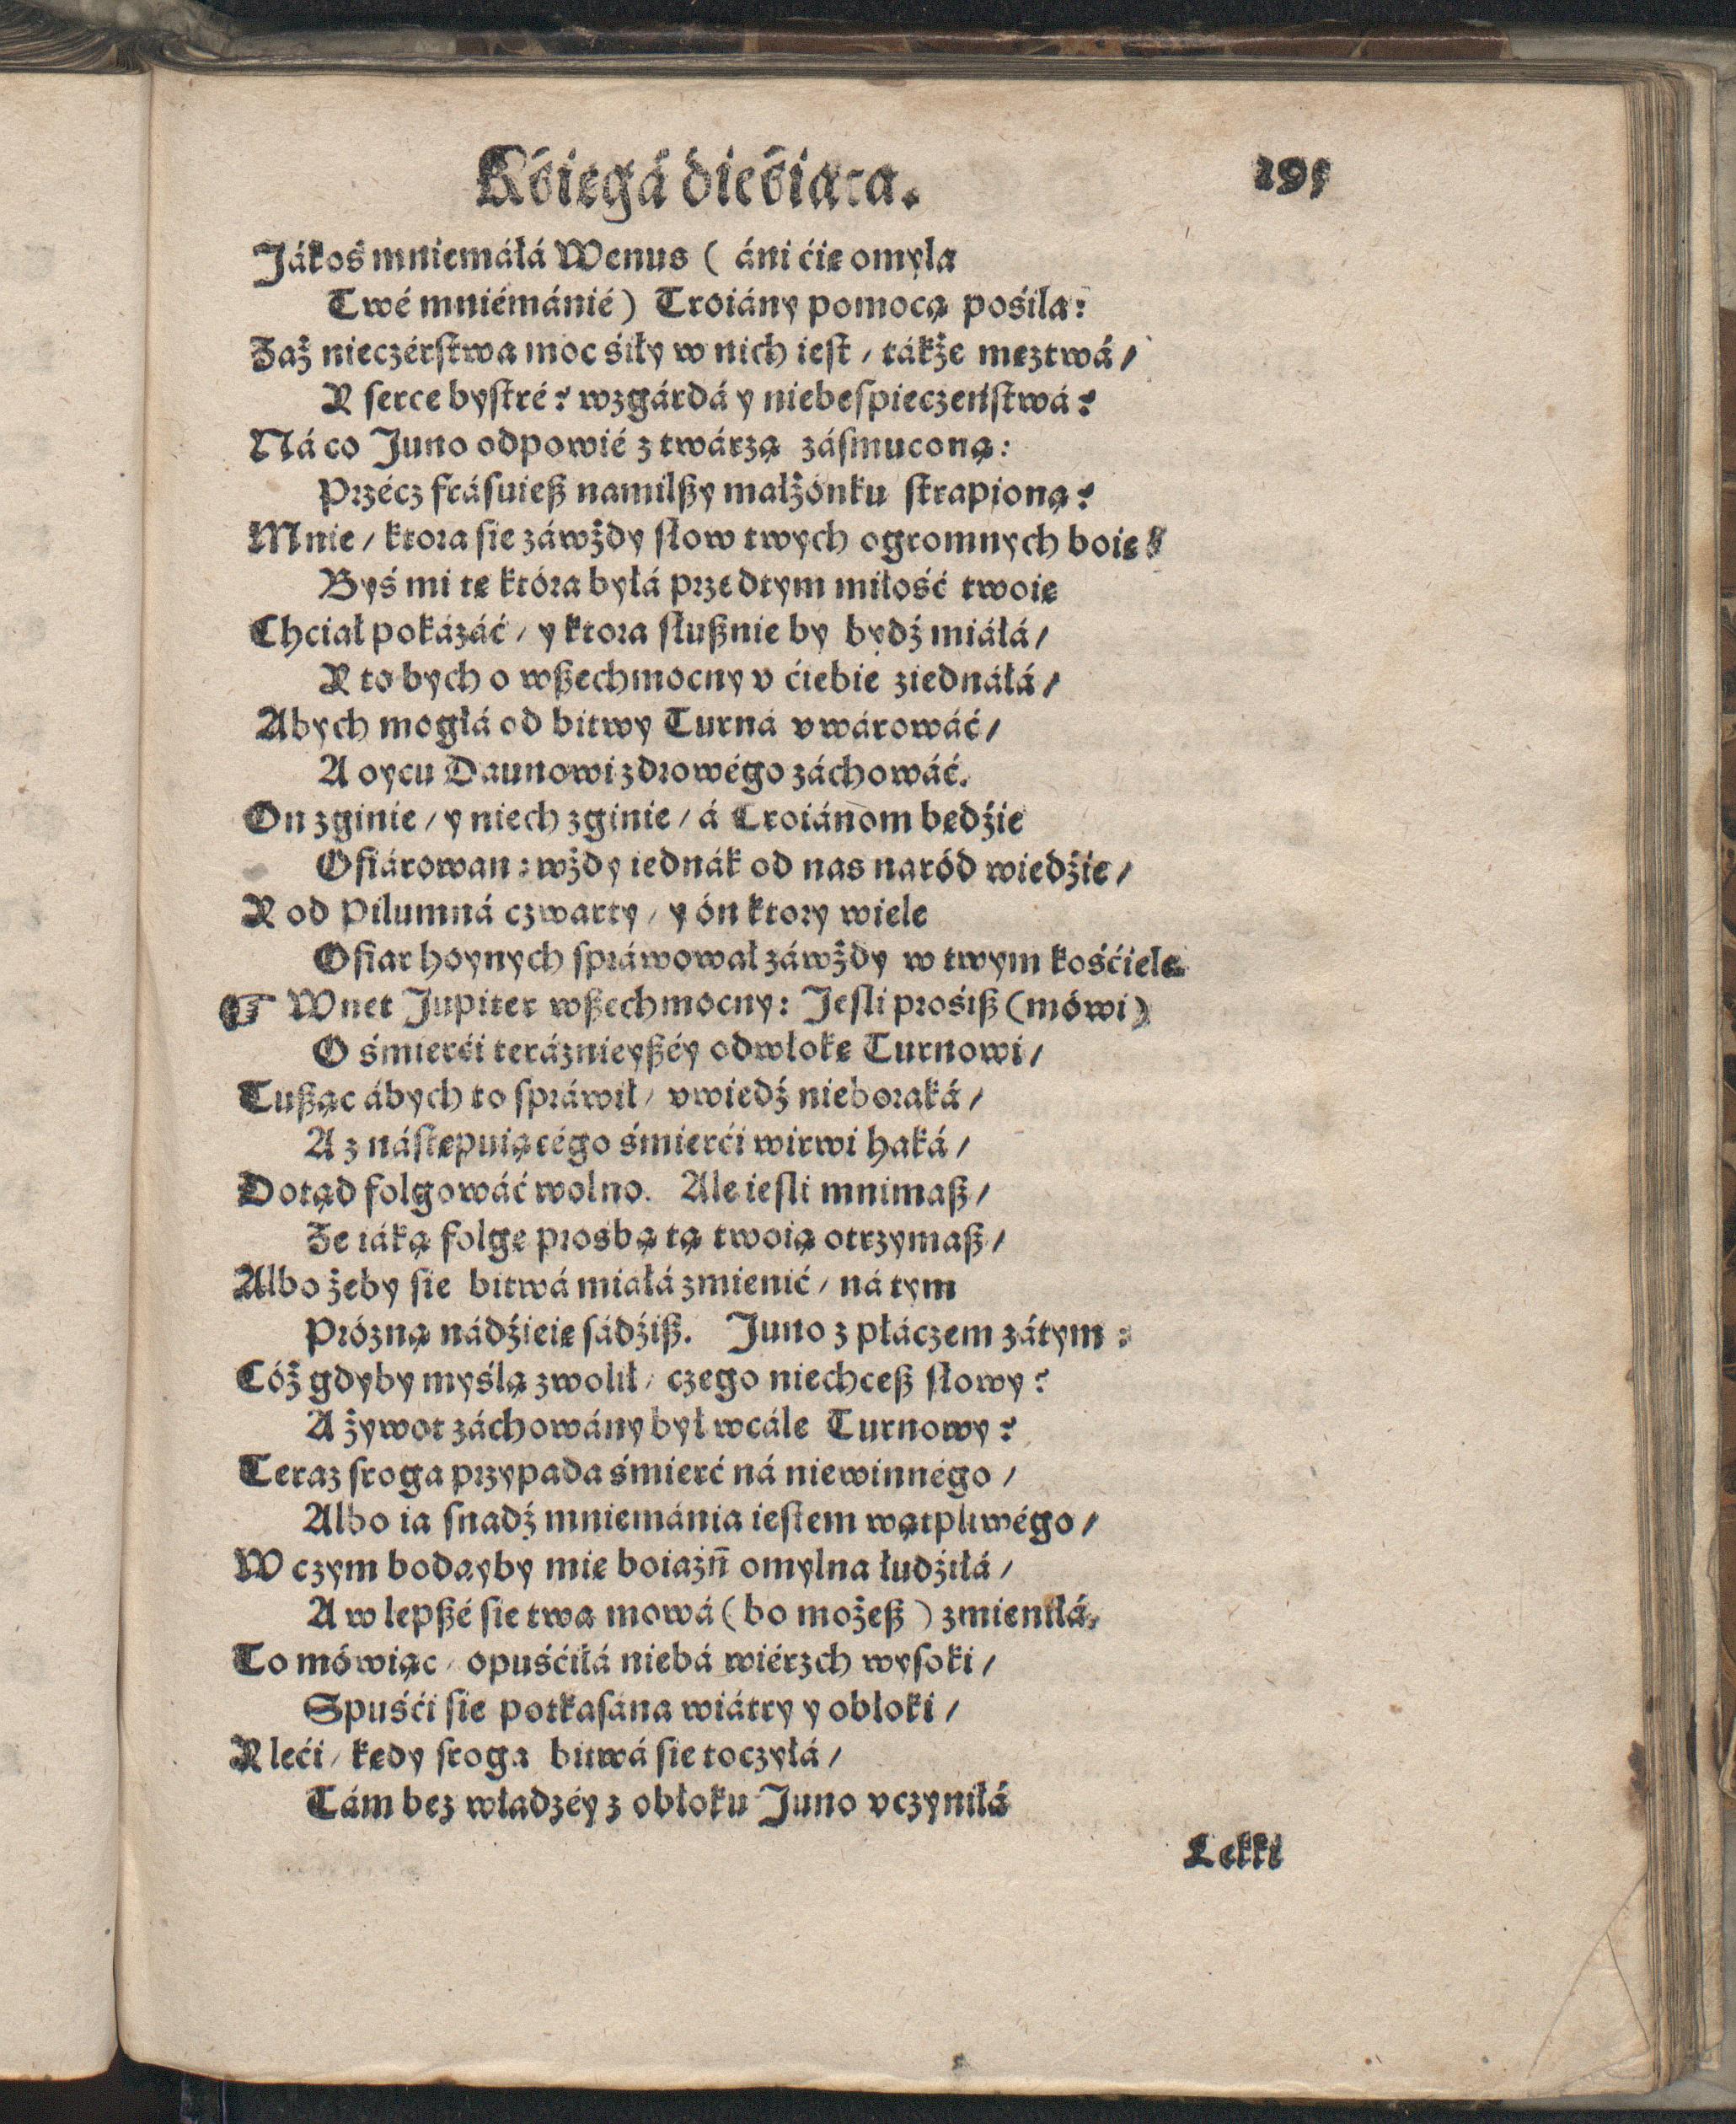 Kśięgá dieśiąta. 295
Jákoś mniemáłá Wenus ( áni ćię omyla
Twé mniémánié) Troiány pomocą pośila:
Zaż nieczérſtwa moc śiły w nich ieſt / tákże męztwá /
Y ſerce byſtré? wzgárdá y niebeſpieczeńſtwá?
Ná co Juno odpowié z twárzą záſmuconą:
Przécz fráſuieß namilßy małżónku ſtrapioną?
Mnie / ktora ſie záwżdy ſłow twych ogromnych boię?
Byś mi tę która byłá przedtym miłość twoię
Chciał pokázáć / y ktora ſłußnie by bydź miáłá /
Y to bych o wßechmocny v ćiebie ziednáłá /
Abych mogłá od bitwy Turná vwárowáć /
A oycu Daunowi zdrowégo záchowáć.
On zginie / y niech zginie / á Troiánom będźie
Ofiárowan: wżdy iednák od nas naród wiedźie /
Y od Pilumná czwarty / y ón ktory wiele
Ofiar hoynych spráwował záwżdy w twym kośćiele.
☞ Wnet Jupiter wßechmocny: Jeſli prośiß (mówi)
O śmierći teráznieyßéy odwłokę Turnowi /
Tußąc ábych to spráwił / vwiedź nieboraká /
A z náſtępuiącégo śmierći wirwi haká /
Dotąd folgowáć wolno. Ale ieſli mnimaß /
Że iáką folgę prosbą tą twoią otrzymaß /
Albo żeby ſie bitwá miałá zmienić / ná tym
Prózną nádźieię ſádźiß. Juno z płáczem zátym:
Cóż gdyby myślą zwolił / czego niechceß ſłowy?
A żywot záchowány był wcále Turnowy?
Teraz ſroga przypada śmierć ná niewinnégo /
Albo ia ſnadź mniemánia ieſtem wątpliwégo /
W czym bodayby mię boiaźń omylna łudźiłá /
A w lepßé ſie twa mowá (bo możeß) zmieniłá.
To mówiąc / opuśćiłá niebá wiérzch wyſoki /
Spuśći ſie potkaſána wiátry y obłoki /
Y leći / kędy ſroga bitwá ſie toczyłá /
Tám bez władzéy z obłoku Juno vczyniłá
Lekki